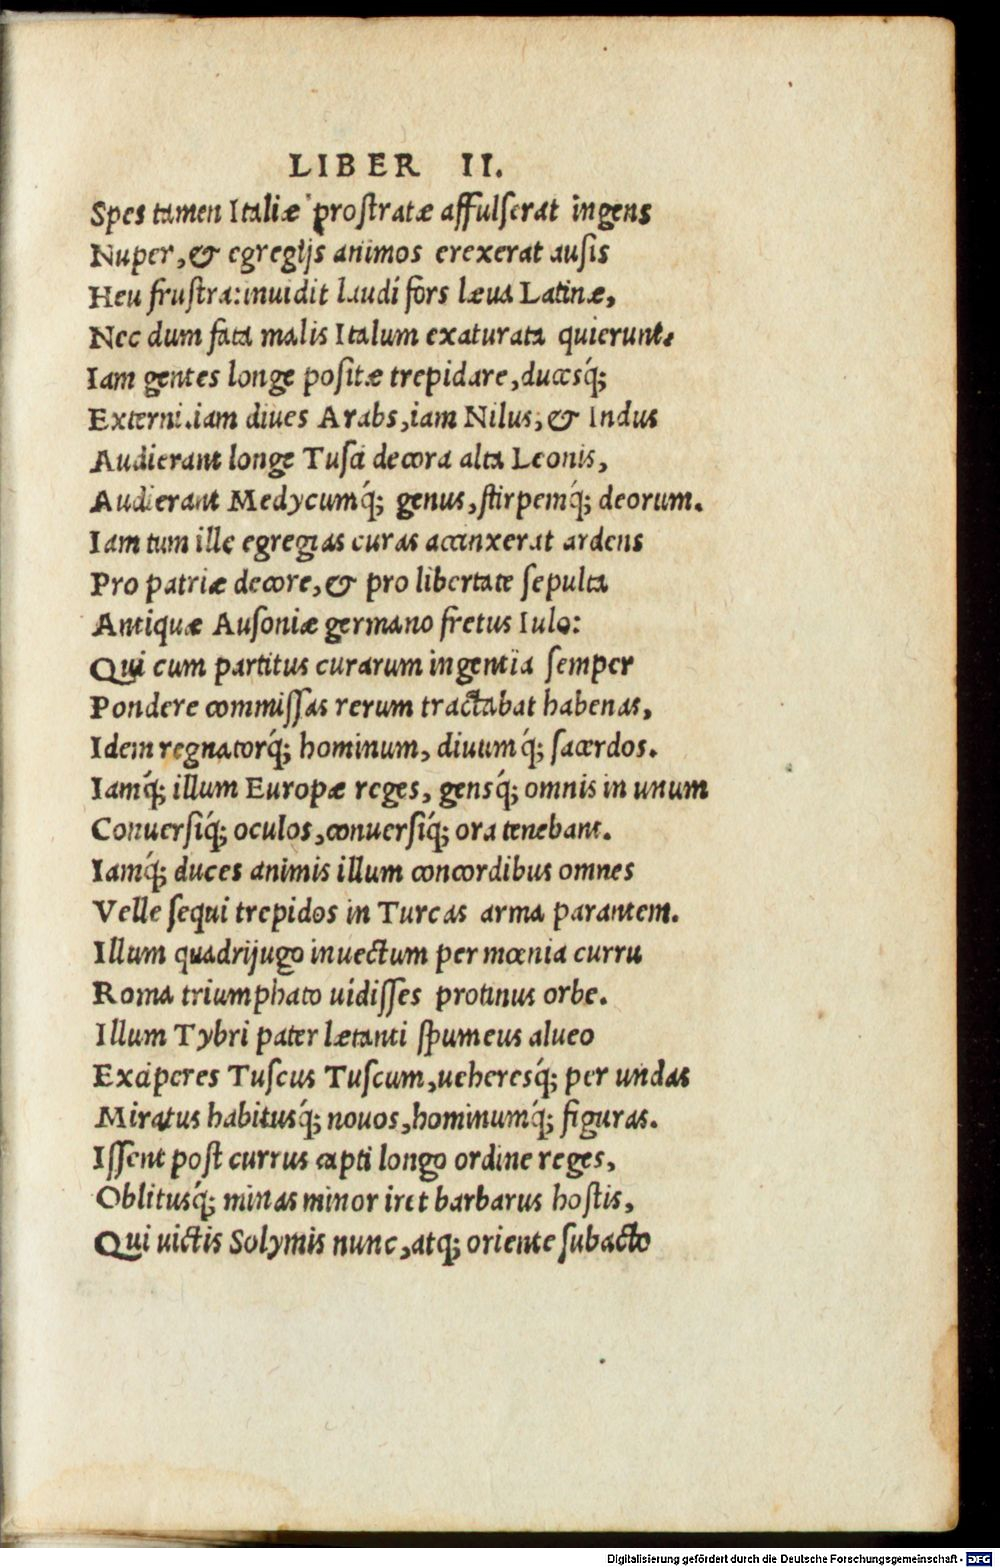 LIBER II.
Spes tamen Italiæ proſtratæ affulſerat ingens
Nuper, & egregijs animos erexerat auſis
Heu fruſtra: inuidit laudi fors læua Latinæ,
Nec dum fata malis Italum exaturata quierunt.
Iam gentes longe poſitæ trepidare, ducesq́;
Externi. iam diues Arabs, iam Nilus, & Indus
Audierant longe Tuſci decora alta Leonis,
Audierant Medycumq́; genus, ſtirpemq́; deorum.
Iam tum ille egregias curas accinxerat ardens
Pro patriæ decore, & pro libertate ſepulta
Antiquæ Auſoniæ germano fretus Iulo:
Qui cum partitus curarum ingentia ſemper
Pondere commiſſas rerum tractabat habenas,
Idem regnatorq́; hominum, diuumq́; ſacerdos.
Iamq́; illum Europæ reges, gensq́; omnis in unum
Conuerſiq́; oculos, conuerſiq́; ora tenebant.
Iamq́; duces animis illum concordibus omnes
Velle ſequi trepidos in Turcas arma parantem.
Illum quadrijugo inuectum per mœnia curru
Roma triumphato uidiſſes protinus orbe.
Illum Tybri pater lætanti ſpumeus alueo
Exciperes Tuſcus Tuſcum, ueheresq́; per undas
Miratus habitusq́; nouos, hominumq́; figuras.
Iſſent poſt currus capti longo ordine reges,
Oblitusq́; minas minor iret barbarus hoſtis,
Qui uictis Solymis nunc, atq; oriente ſubacto
Digitalisierung gefördert durch die Deutsche Forschungsgemeinschaft - DFG